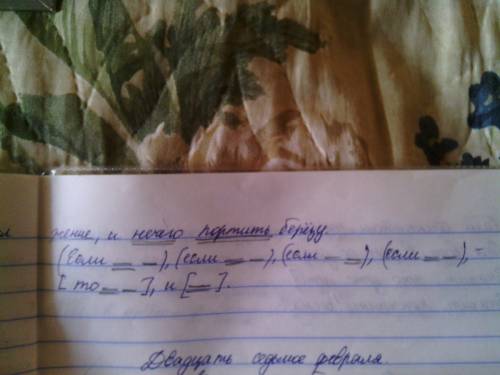 жение, и нечего портить берёзу.
(Если = –), (если = –), (если – =), (если = –), –
[то = –], и [=].
Двадцать седьмое февраля.